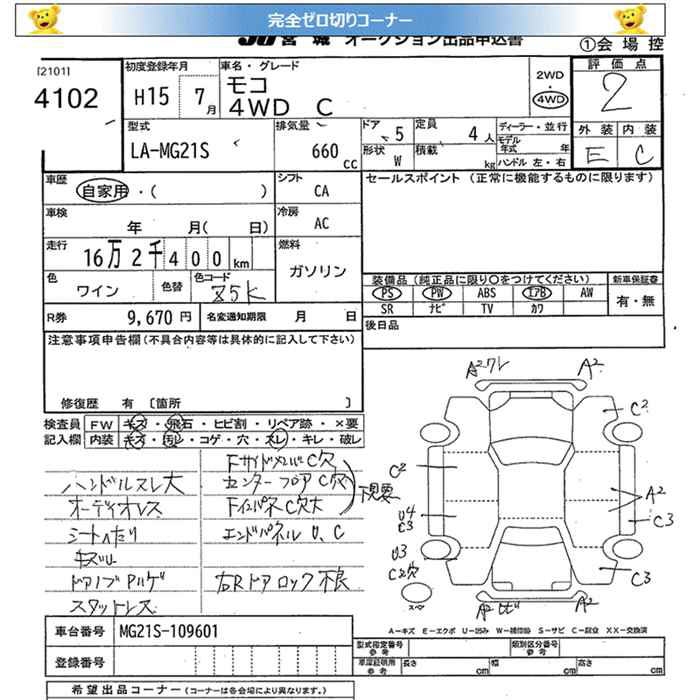 完全ゼロ切りコーナー
JU 宮城 オークション出品申込書
①会場控
[2101]
4102
初度登録年月
H15 7月
車名・グレード
モコ
4WD C
2WD
・
4WD
評価点
2
外装 内装
E C
型式
LA-MG21S
排気量
660 cc
ドア 5
形状 W
定員 4人
積載 kg
ディーラー・並行
モデル年式 年
ハンドル 左・右
車歴
自家用・( )
シフト
CA
セールスポイント (正常に機能するものに限ります)
車検
年 月( 日)
冷房
AC
走行
16万2千400km
燃料
ガソリン
色
ワイン
色替
色コード
Z5K
装備品 (純正品に限り○をつけてください)
新車保証書
PS PW ABS エアB AW
有・無
SR ナビ TV カワ
R券
9,670円
名変通知期限 月 日
後日品
注意事項申告欄(不具合内容等は具体的に記入して下さい)
修復歴 有 [箇所 ]
検査員
記入欄
FW キズ・飛石・ヒビ割・リペア跡・×要
内装 キズ・汚レ・コゲ・穴・スレ・キレ・破レ
ハンドルスレ大
オーディオレス
シートへたり
キズU
ドアノブPハゲ
スタットレス
FサイドメンバC穴
センターフロアC穴
FインパネC穴大
下見要
エンドパネルU、C
右Rドアロック不良
A2ワレ
A2
C2
C2
A2
U4
C3
C3
U3
C2穴
C3
スペア
A2ヒビ
A2
A－キズ E－エクボ U－凹み W－補修跡 S－サビ C－腐食 XX－交換済
車台番号
MG21S-109601
登録番号
型式指定番号
参考
類別区分番号
参考
車庫証明用
参考
長さ cm
幅 cm
高さ cm
希望出品コーナー (コーナーは各会場により異なります。)